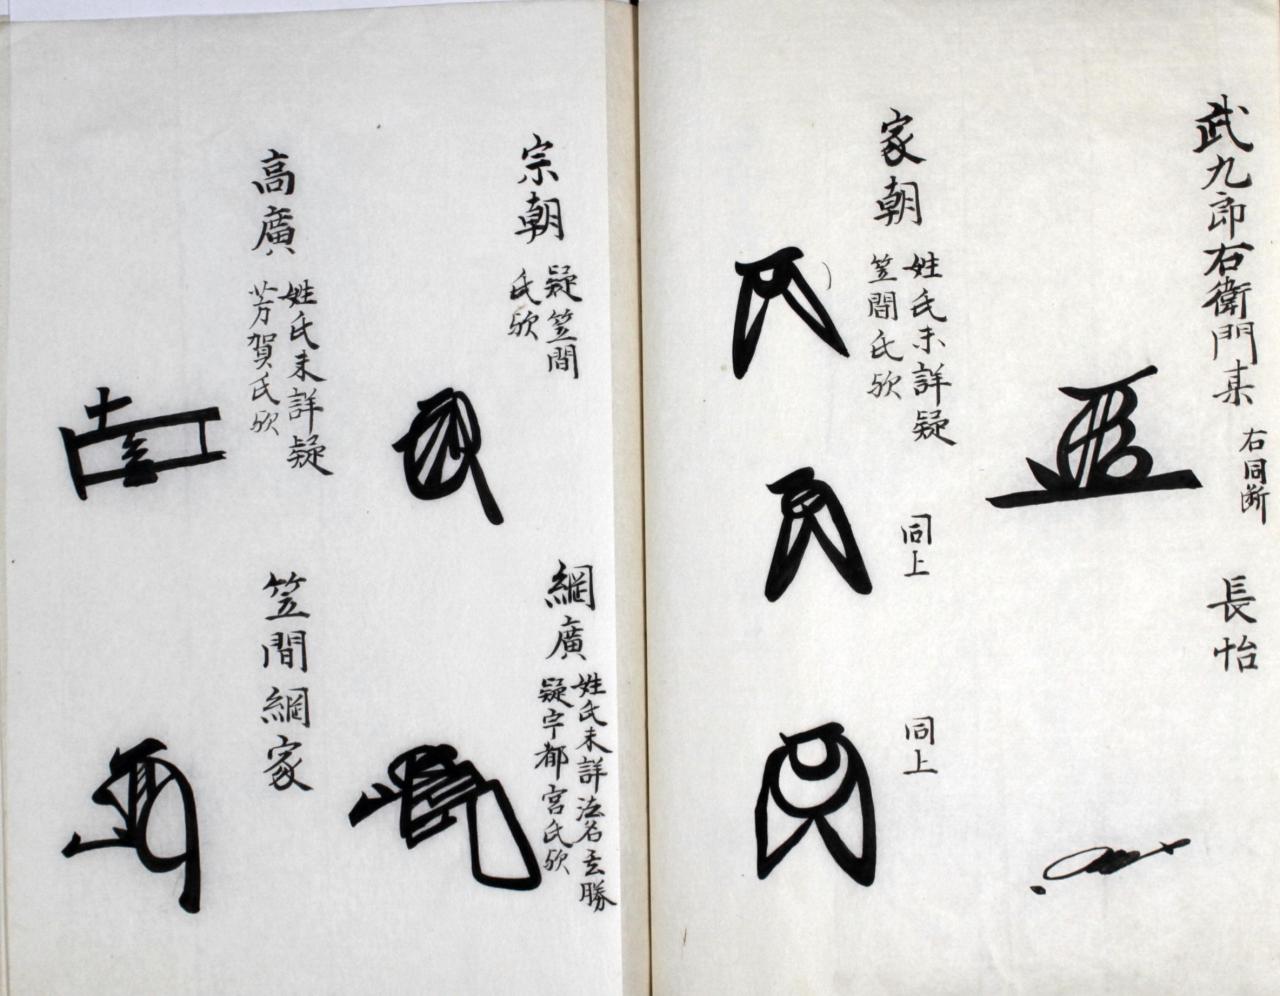 武九郎右衛門某
右同断
長怡
家朝
姓氏未詳疑
笠間氏歟
同上
同上
宗朝
疑笠間
氏歟
綱廣
姓氏未詳法名玄勝
疑宇都宮氏歟
高廣
姓氏未詳疑
芳賀氏歟
笠間綱家